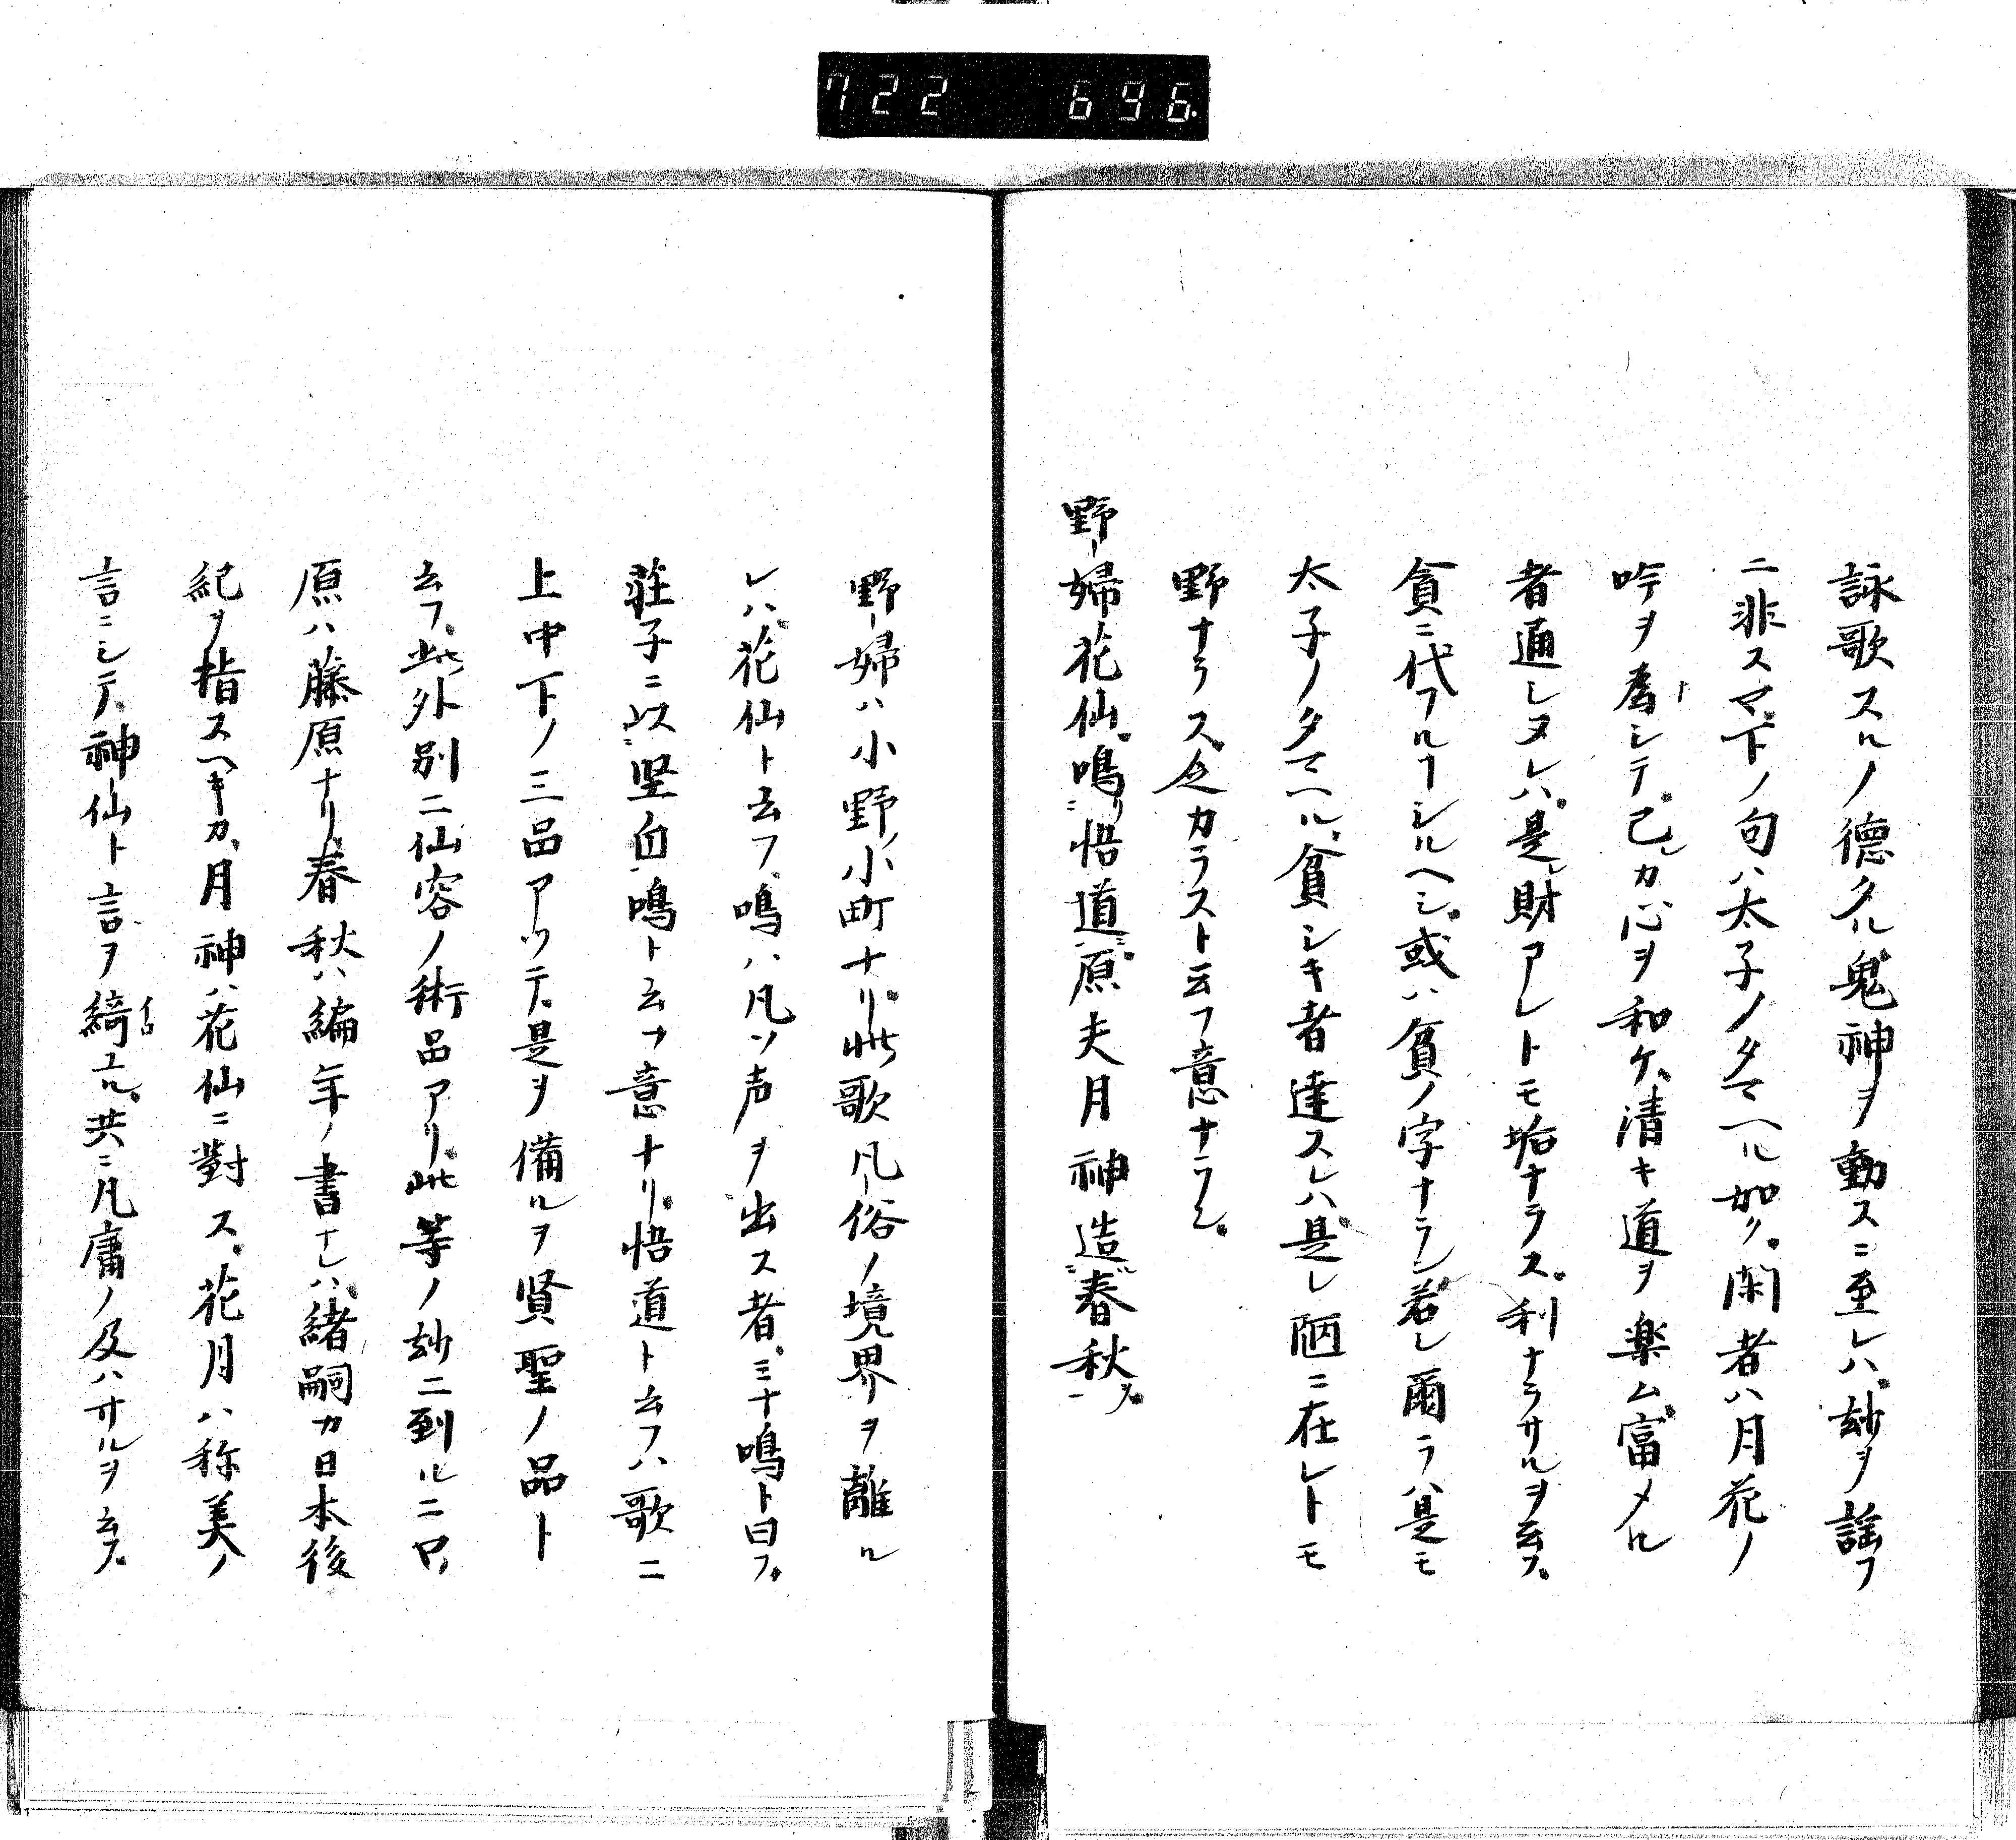 722 696.
詠歌スルノ徳タル鬼神ヲ動スニ至レハ、妙ヲ謡フ
ニ非スマ下ノ句ハ太子ノタマヘル如ク。閑者ハ月花ノ
吟ヲ為シテ、己レカ心ヲ和ケ、清キ道ヲ楽ム、富メル
者通レヌレハ、是レ財アレトモ垢ナラス。利ナラサルヲ云フ。
貪ニ代フルヿシルヘシ。或ハ貧ノ字ナラン、若レ爾ラハ是モ
太子ノタマヘル、貧シキ者達スレハ是レ陋ニ在レトモ
野ナラス、烋カラスト云フ意ナラン。
野婦花仙鳴リ悟道原夫月神造春秋ヲ。
野婦ハ小野ノ小町ナリ。此歌凡俗ノ境界ヲ離ル
レハ、花仙ト云フ、鳴ハ凡ソ声ヲ出ス者、ミナ鳴ト曰フ。
荘子ニ以堅白鳴ト云フ意ナリ。悟道ト云フハ歌ニ
上中下ノ三品アツテ、是ヲ備ルヲ賢聖ノ品ト
云フ、此外別ニ仙容ノ術品アリ。此等ノ妙ニ到ルニや。
原ハ藤原ナリ、春秋ハ編年ノ書ナレハ、緒嗣カ日本後
紀ヲ指スヘキカ、月神ハ花仙ニ對ス。花月ハ称美ノ
言ニシテ、神仙ト言ヲ綺エル。共ニ凡庸ノ及ハサルヲ云フ。